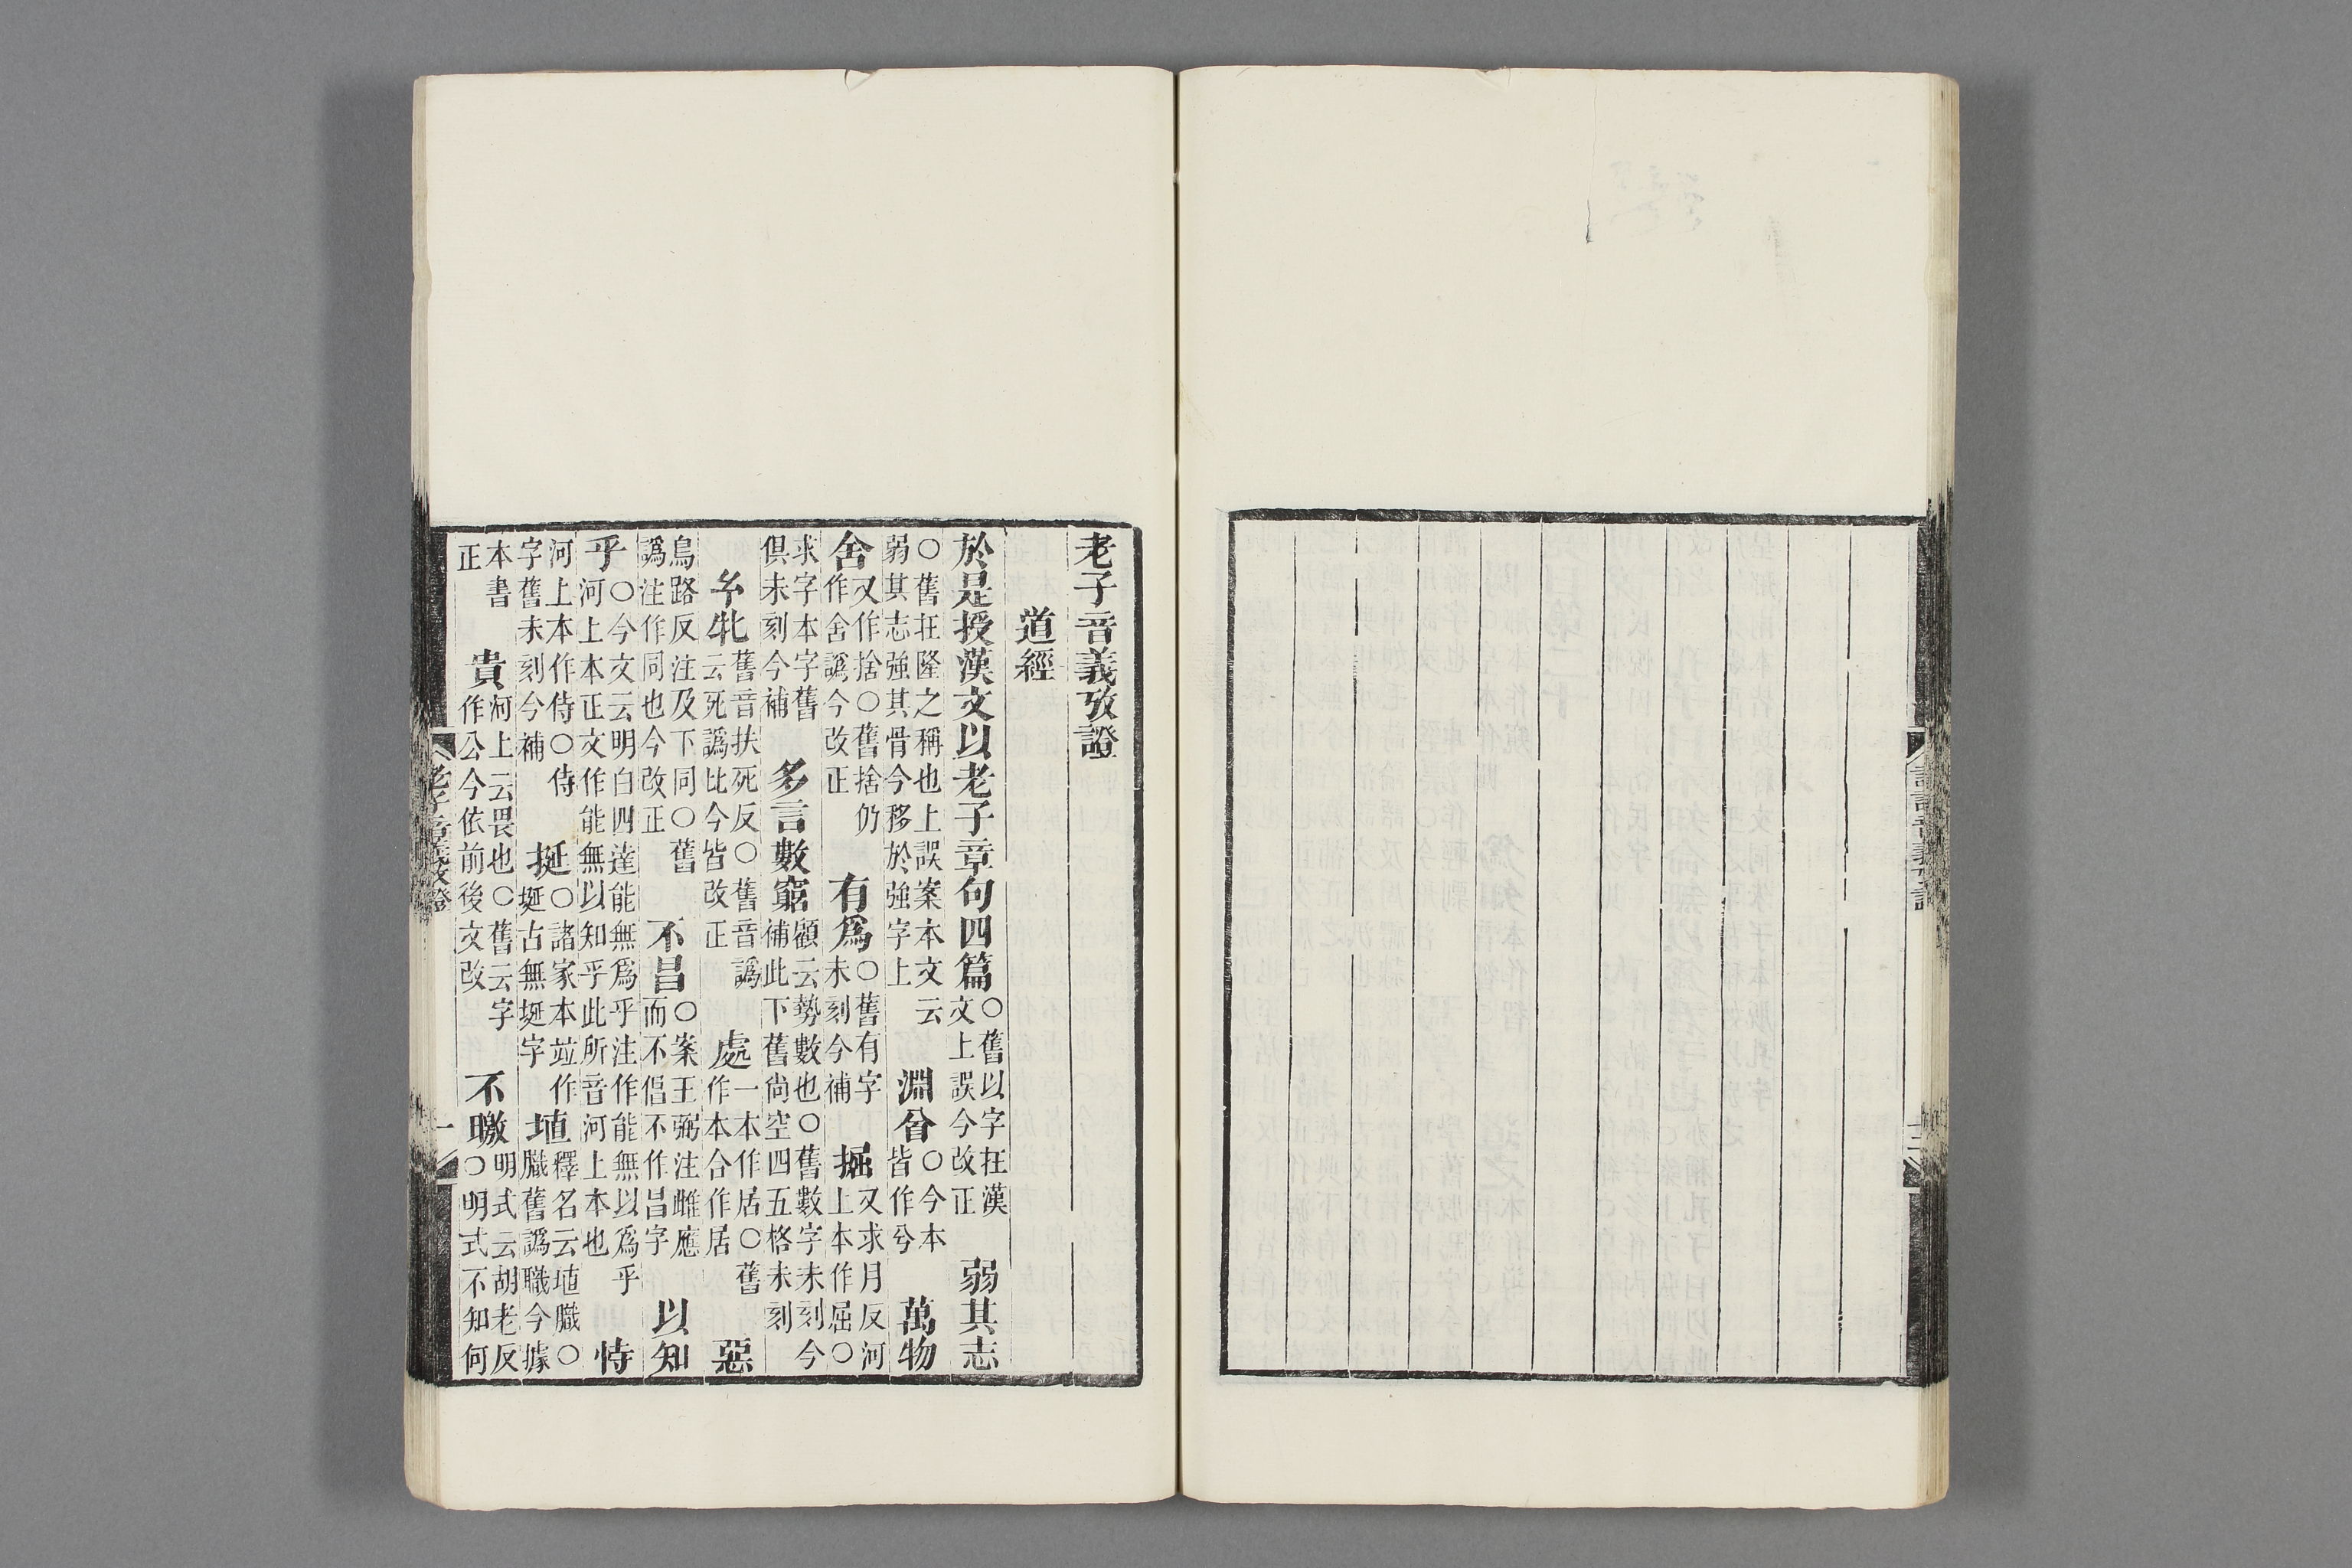 論語音義攷證
老子音義攷證
道經
於是授漢文以老子章句四篇○舊以字在漢文上誤今改正弱其志
○舊在隆之稱也上誤案本文云弱其志強其骨今移於強字上淵○今本皆作兮萬物
舍又作捨○舊捨仍作舍譌今改正有爲○舊有字未刻今補掘又求月反河上本作屈○
求字本字舊俱未刻今補多言數窮顧云勢數也○舊數字未刻今補此下舊尚空四五格未刻
玄牝舊音扶死反○舊音譌云死譌比今皆改正處一本作居○舊作本合作居惡
烏路反注及下同○舊譌注作同也今改正不昌○案王弼注雌應而不倡不作昌字以知
乎○今文云明白四達能無爲乎注作能無以爲乎河上本正文作能無以知乎此所音河上本也恃
河上本作侍○侍字舊未刻今補挻○諸家本竝作埏古無埏字埴釋名云埴膱○膱舊譌職今據
本書正貴河上云畏也○舊云字作公今依前後文改不曒明式云胡老反○明式不知何
老子音義攷證
一